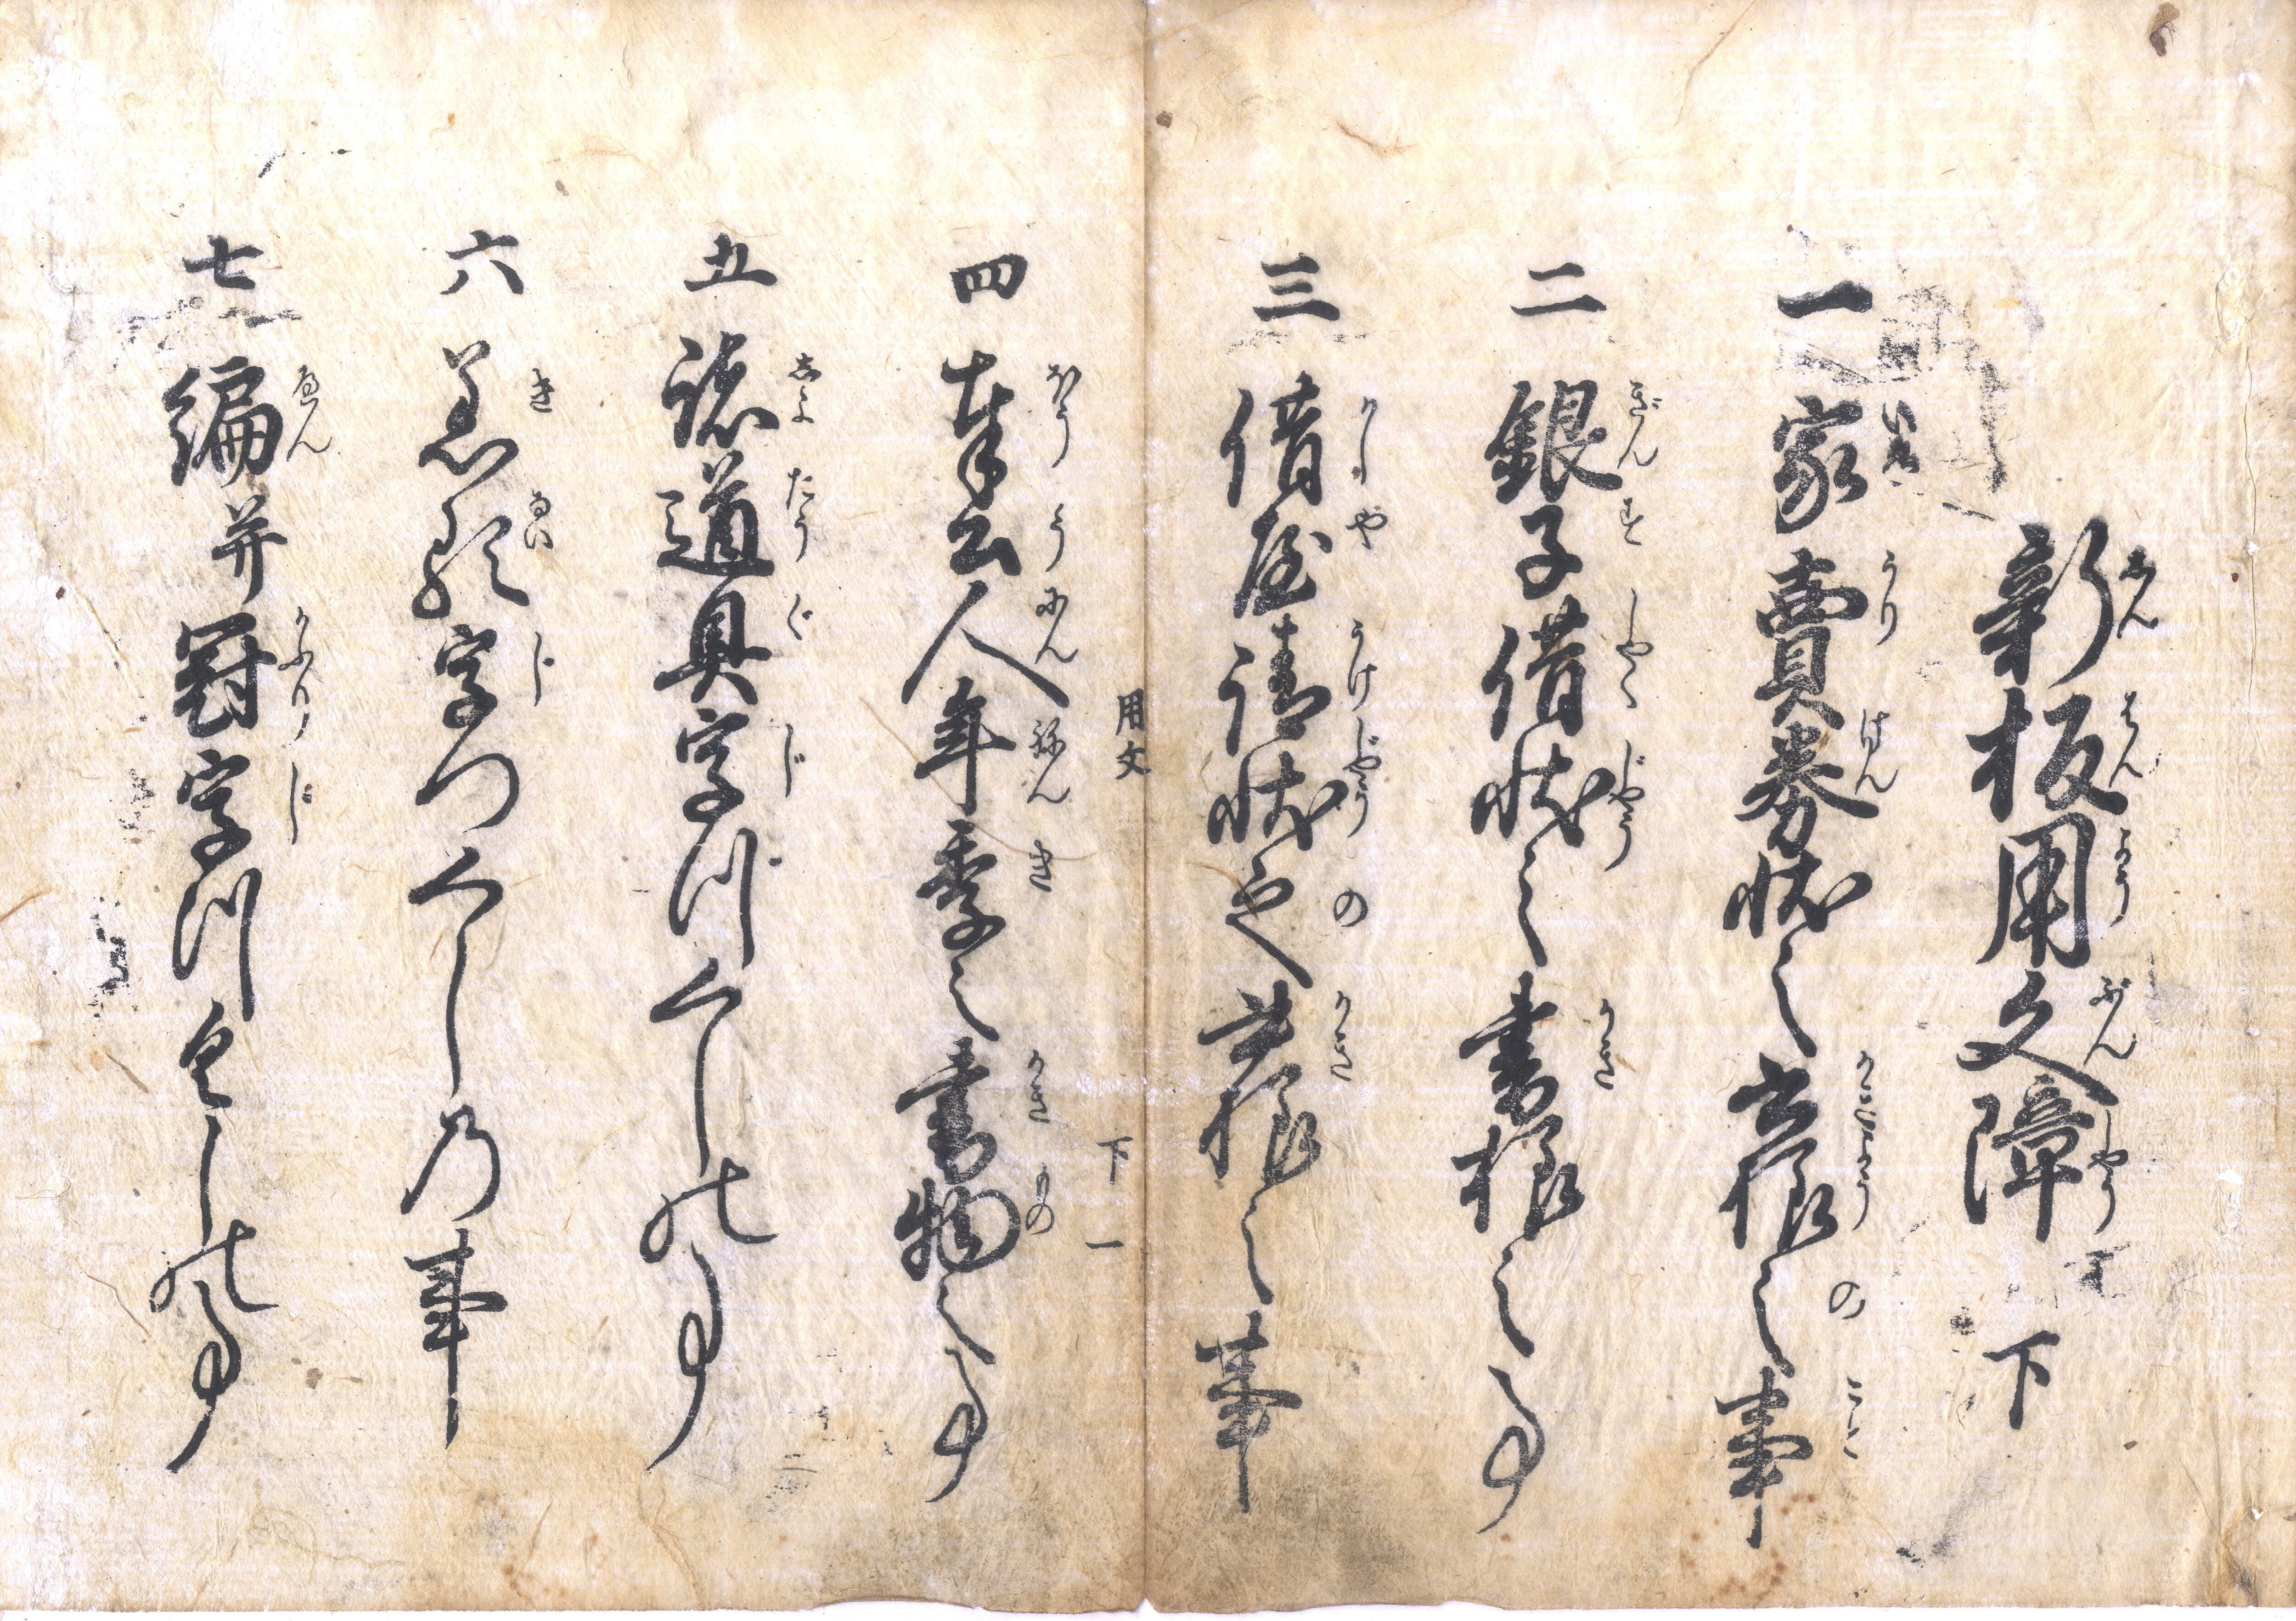 新板用文障 下
一 家賣券状之書様之事
二 銀子借状之書様之事
三 借屋請状之書様之事
四 奉公人年季之書物之事
用文 下 一
五 諸道具字川くしの事
六 着類字つくし乃事
七 編并冠字川くしの事